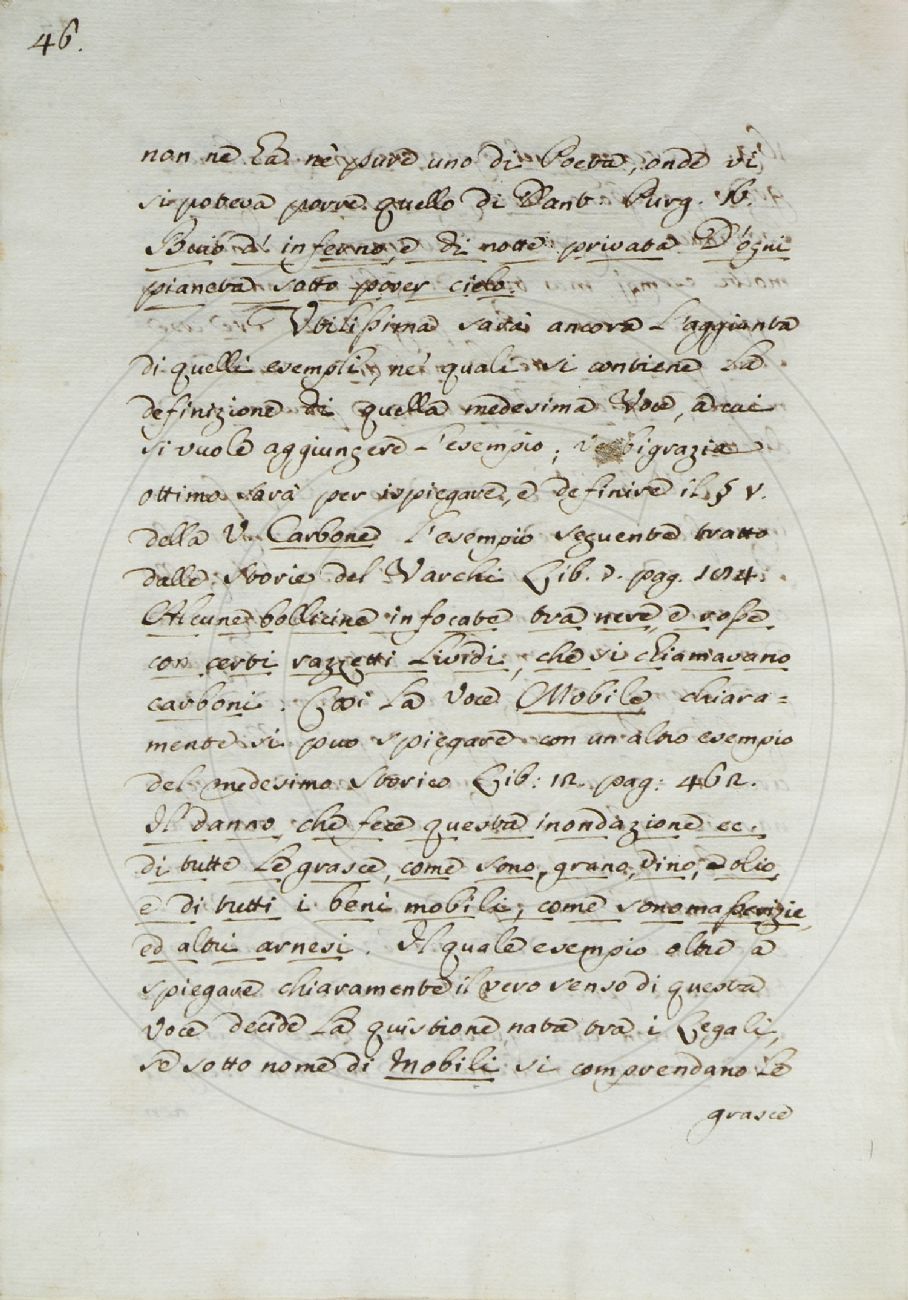 46.
non ne ha nè pure uno di Poeta, onde vi
si poteva porre quello di Dant. Purg. 16.
Buio d' inferno, e di notte privata D'ogni
pianeta sotto pover cielo.
Utilissima sarà ancora l'aggiunta
di quelli esempli, ne' quali si contiene la
definizione di quella medesima Voce, a cui
si vuole aggiungere l'esempio; verbigrazia
ottimo sarà per ispiegare, e definire il § V.
della V. Carbone l'esempio seguente tratto
dalle Storie del Varchi Lib. 7. pag.
Alcune bollicine infocate tra nere, e rosse
con certi razzetti lividi, che si chiamavano
carboni. Così la Voce Mobile chiara=
mente si puo spiegare con un altro esempio
del medesimo Storico Lib: 12. pag: 462.
Il danno, che fece questa inondazione ec.
di tutte le grasce, come sono, grano, vino, e olio,
e di tutti i beni mobili, come sono masserizie,
ed altri arnesi. Il quale esempio oltre a
spiegare chiaramente il vero senso di questa
Voce decide la quistione nata tra i Legali,
se sotto nome di Mobili si comprendano le
grasce